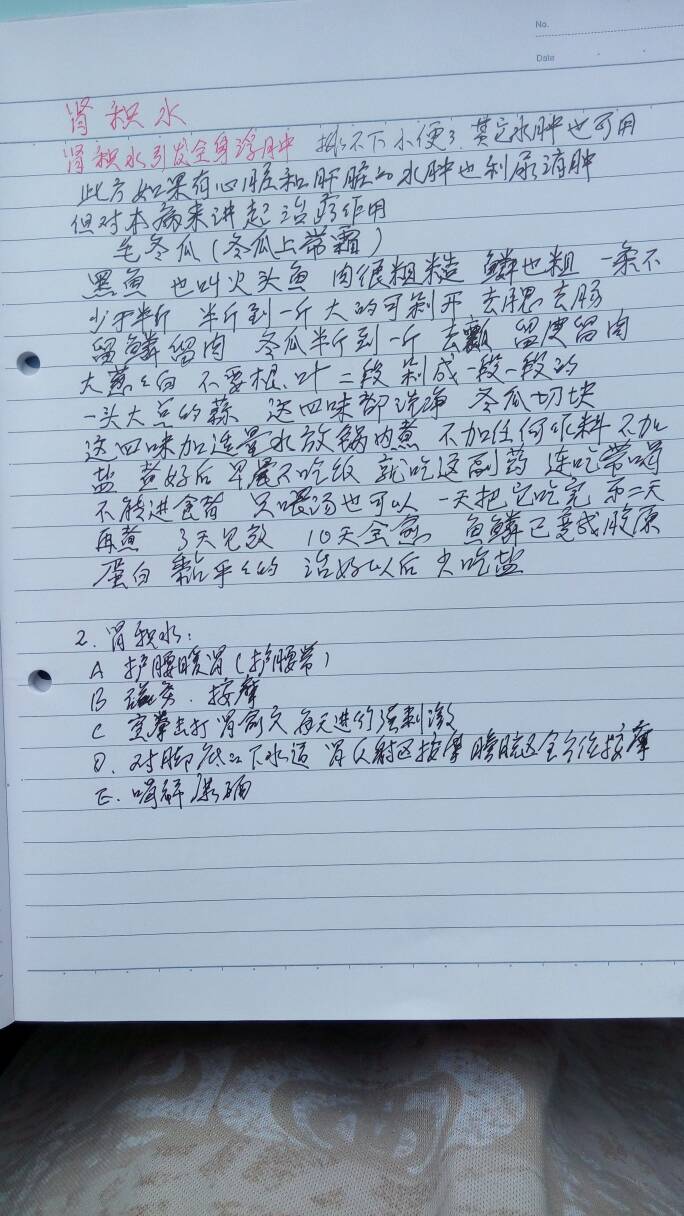 No.
Date
肾积水
肾积水引发全身浮肿 排不下小便了.其它水肿也可用
此方如果有心脏和肝脏的水肿也利尿消肿
但对本病来讲起治疗作用
毛冬瓜(冬瓜上带霜)
黑鱼 也叫火头鱼 肉很粗糙 鳞也粗 一条不
少于半斤 半斤到一斤 大的可剁开 去腮去肠
留鳞留肉 冬瓜半斤到一斤 去瓤 留皮留肉
大葱葱白 不要根、叶 二段 剁成一段一段的
一头大点的蒜 这四味都洗净 冬瓜切块
这四味加适量水放锅内煮 不加任何作料 不加
盐 煮好后 早晨不吃饭 就吃这副药 连吃带喝
不能进食者 只喂汤也可以 一天把它吃完 第二天
再煮 3天见效 10天全愈 鱼鳞已变成胶原
蛋白 黏乎乎的 治好以后 少吃盐
2. 肾积水:
A 护腰暖肾(护腰带)
B 磁灸. 按摩
C 空拳击打肾俞穴 每天进行强刺激
D. 对脚底的下水道 肾反射区按摩 膀胱区全方位按摩
E. 喝解尿晒